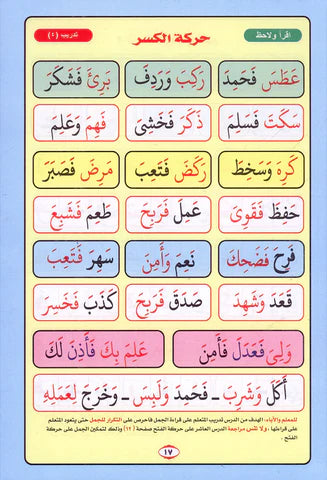 اقرأ ولاحظ
حركة الكسر
تدريب (٥)
عَطَسَ فَحَمِدَ رَكِبَ وَرَدِفَ بَرِئَ فَشَكَرَ
سَكَتَ فَسَلِمَ ذَكَرَ فَخَشِىَ فَهِمَ وَعَلِمَ
كَرِهَ وَسَخِطَ رَكَضَ فَتَعِبَ مَرِضَ فَصَبَرَ
حَفِظَ فَقَوِىَ عَمِلَ فَرَبِحَ طَعِمَ فَشَبِعَ
فَرِحَ فَضَحِكَ نَعِمَ وَأَمِنَ سَهِرَ فَتَعِبَ
قَعَدَ وَشَهِدَ صَدَقَ فَرَبِحَ كَذَبَ فَخَسِرَ
وَلِىَ فَعَدَلَ فَأَمِنَ عَلِمَ بِكَ فَأَذِنَ لَكَ
أَكَلَ وَشَرِبَ ـ فَحَمِدَ وَلَبِسَ ـ وَخَرَجَ لِعَمَلِهِ
للمعلم والآباء: الهدف من الدرس تدريب المتعلم على قراءة الجمل فاحرص على التكرار للجمل حتى يتعود المتعلم
على قراءتها ، ولا تنس مراجعة الدرس العاشر على حركة الفتح صفحة (١٢) وذلك لتمكين الجمل على حركة
الفتح .
١٧